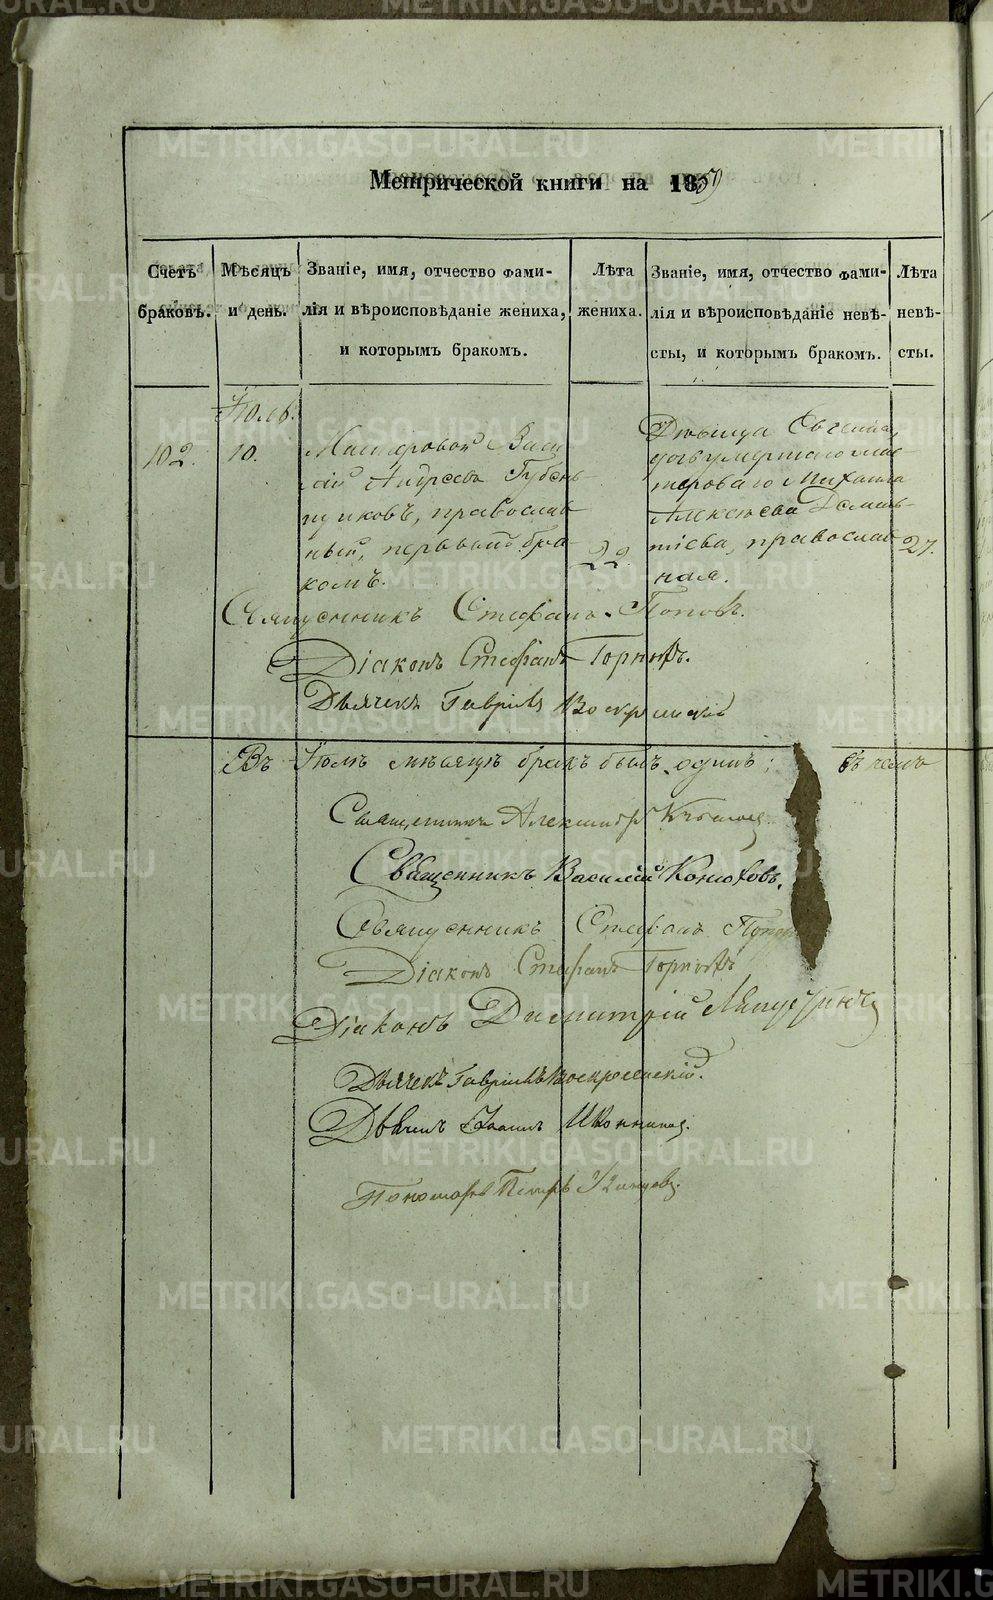 Метрической книги на 1859
Счетъ браковъ.
Мѣсяцъ и день.
Званіе, имя, отчество фами-
лія и вѣроисповѣданіе жениха,
и которымъ бракомъ.
Лѣта жениха.
Званіе, имя, отчество фами-
лія и вѣроисповѣданіе невѣ-
сты, и которымъ бракомъ.
Лѣта невѣ-
сты.
Іюль.
102.
10.
Мастеровой Васи
лій Андреевъ Губень
щиковъ, православ
ный, первымъ бра-
комъ.
22.
Дѣвица Евгенія,
дочь умершаго мас-
тероваго Михаила
Алексѣева
православ
ная.
27.
Священникъ Стефанъ Поповъ.
Діаконъ Стефанъ Горныхъ.
Дьячекъ Гавріилъ Воскресенскій
Въ Іюлѣ мѣсяцѣ бракъ былъ одинъ; въ чемъ
Священникъ Александръ
Священникъ Василій Конюховъ.
Священникъ Стефанъ Попов
Діаконъ Стефанъ Горныхъ
Діаконъ Димитрій
Дьячекъ Гавріилъ Воскресенскій.
Дьячекъ Іоаннъ
Пономарь Петръ
METRIKI.GASO-URAL.RU